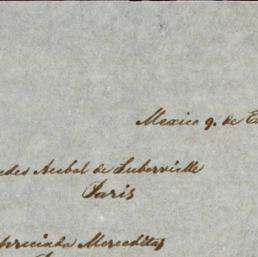 Mexico 9. de E
edes Acebal de Luberville
Paris
preciada Merceditas